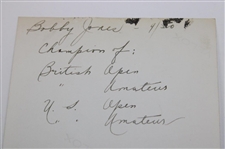 Bobby Jones -
Champion of:
British Open
" Amateur
U.S. Open
" Amateur